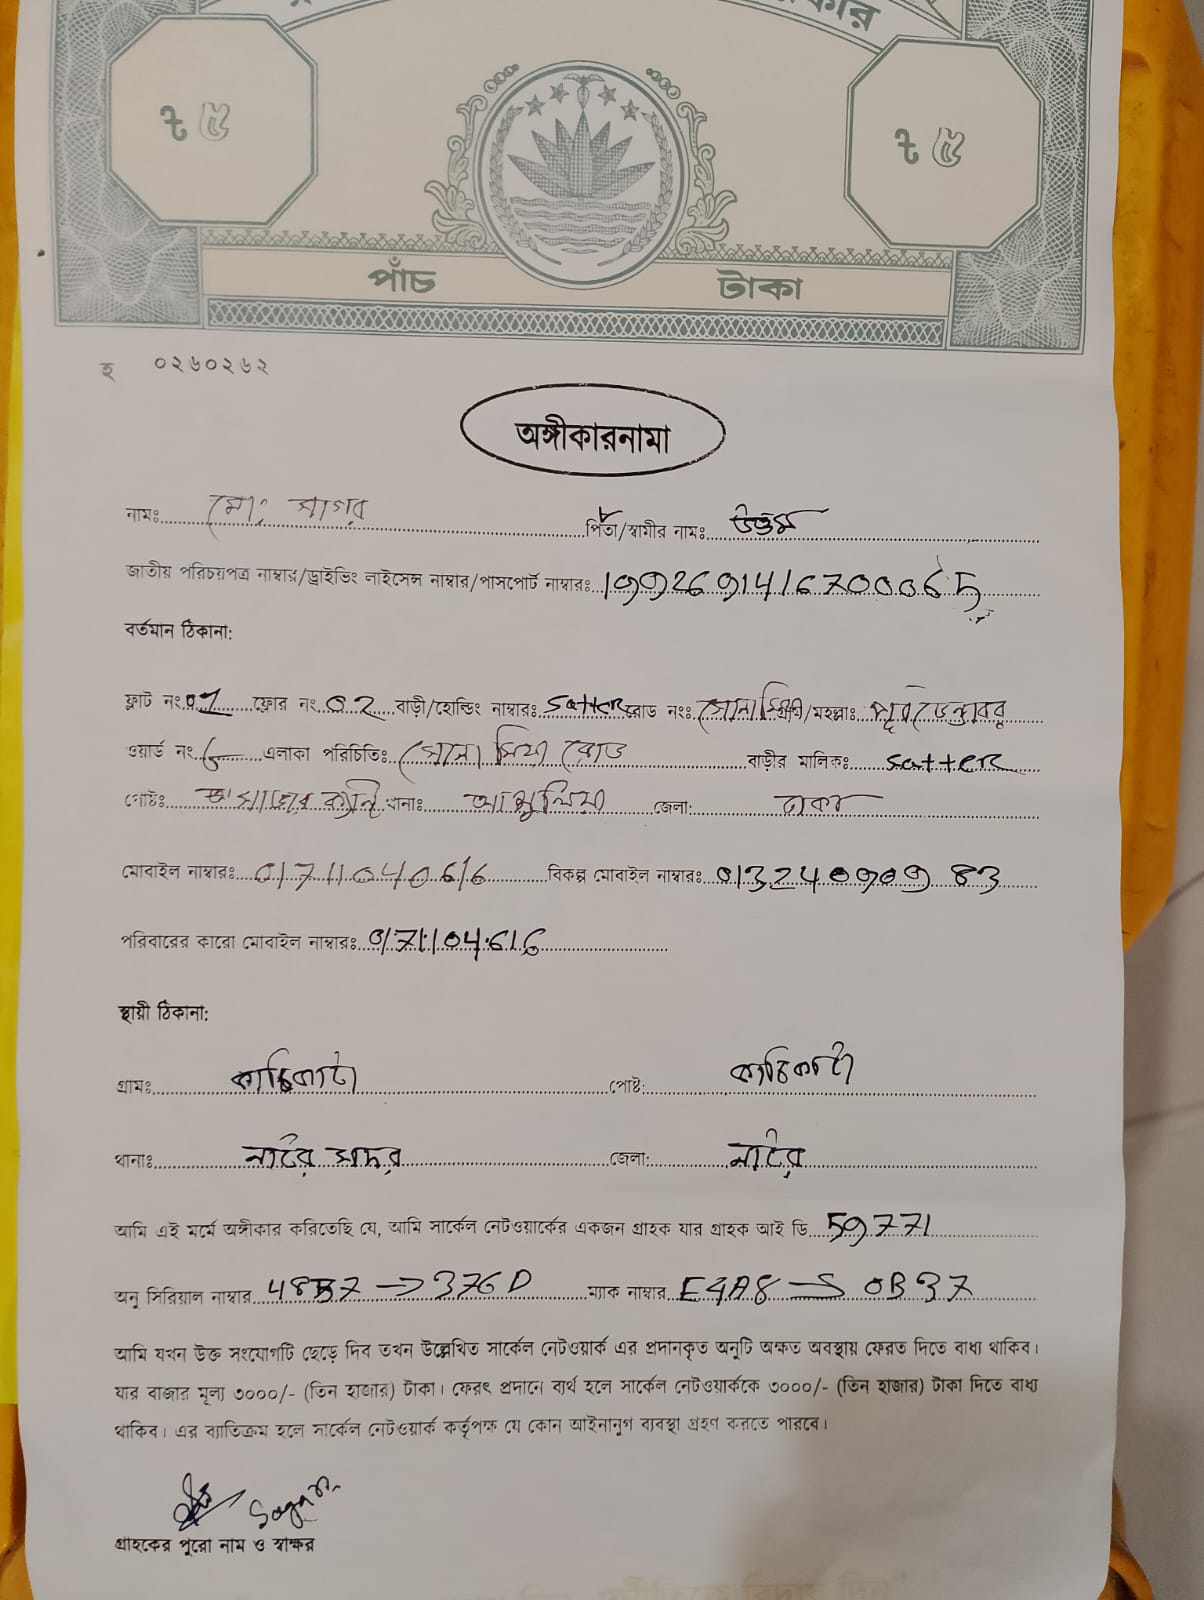 ৳ ৫
৳ ৫
পাঁচ টাকা
হ ০২৬০২৬২
অঙ্গীকারনামা
নামঃ মোঃ সাগর পিতা/স্বামীর নামঃ উত্তম
জাতীয় পরিচয়পত্র নাম্বার/ড্রাইভিং লাইসেন্স নাম্বার/পাসপোর্ট নাম্বারঃ 19926914167000065
বর্তমান ঠিকানা:
ফ্লাট নং ফ্লোর নং 02 বাড়ী/হোল্ডিং নাম্বারঃ Satter রোড নংঃ সোনা মিয়া /মহল্লাঃ
ওয়ার্ড নং এলাকা পরিচিতিঃ সোনা মিয়া রোড বাড়ীর মালিকঃ satter
পোষ্টঃ থানাঃ আশুলিয়া জেলা: ঢাকা
মোবাইল নাম্বারঃ 01711040616 বিকল্প মোবাইল নাম্বারঃ
পরিবারের কারো মোবাইল নাম্বারঃ
স্থায়ী ঠিকানা:
গ্রামঃ পোষ্ট:
থানাঃ নাটোর সদর জেলা: নাটোর
আমি এই মর্মে অঙ্গীকার করিতেছি যে, আমি সার্কেল নেটওয়ার্কের একজন গ্রাহক যার গ্রাহক আই ডি 59771
অনু সিরিয়াল নাম্বার 48B7 → 376D ম্যাক নাম্বার E4A8 → 0B37
আমি যখন উক্ত সংযোগটি ছেড়ে দিব তখন উল্লেখিত সার্কেল নেটওয়ার্ক এর প্রদানকৃত অনুটি অক্ষত অবস্থায় ফেরত দিতে বাধ্য থাকিব।
যার বাজার মূল্য ৩০০০/- (তিন হাজার) টাকা। ফেরৎ প্রদানে ব্যর্থ হলে সার্কেল নেটওয়ার্ককে ৩০০০/- (তিন হাজার) টাকা দিতে বাধ্য
থাকিব। এর ব্যতিক্রম হলে সার্কেল নেটওয়ার্ক কর্তৃপক্ষ যে কোন আইনানুগ ব্যবস্থা গ্রহণ করতে পারবে।
Sagar
গ্রাহকের পুরো নাম ও স্বাক্ষর